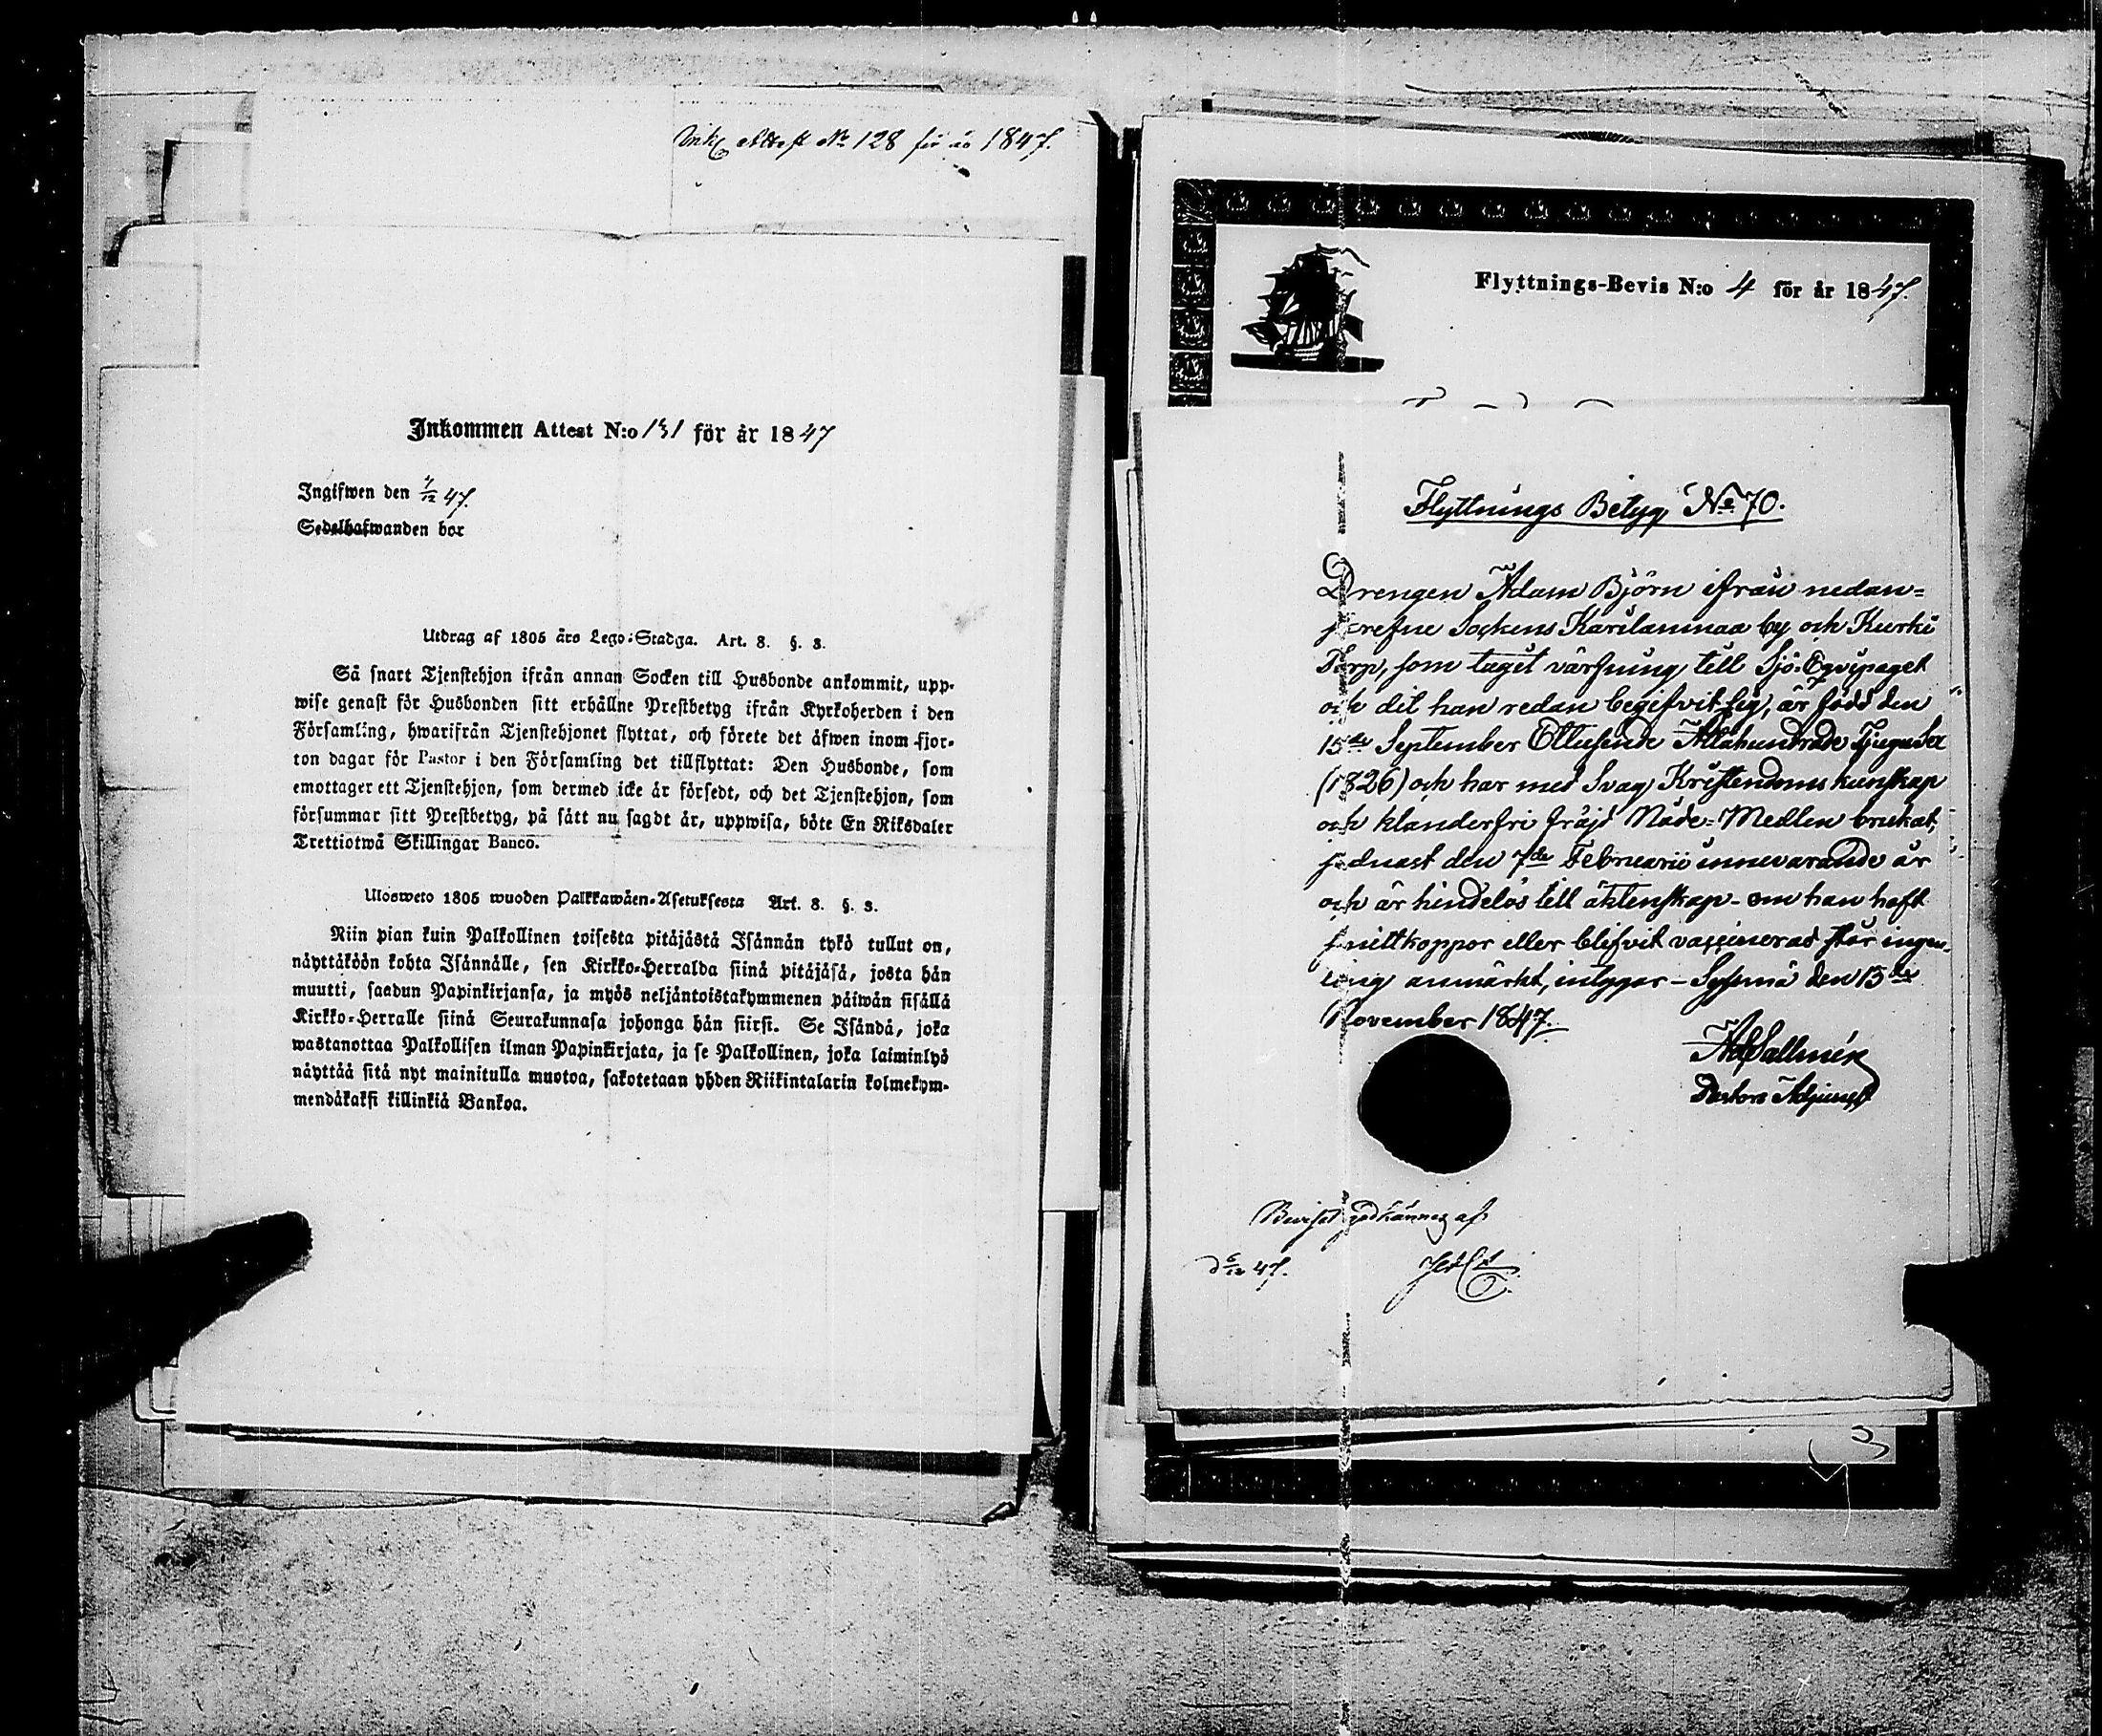 Ink. Attest No 128 för år 1847.
Inkommen Attest N:o 131 för år 1847
Ingifwen den 7/12 47.
Sedelhafwanden bor
Utdrag af 1805 års Lego-Stadga. Art. 8. §. 3.
Så snart Tjenstehjon ifrån annan Socken till Husbonde ankommit, upp-
wise genast för Husbonden sitt erhållne Prestbetyg ifrån Kyrkoherden i den
Församling, hwarifrån Tjenstehjonet flyttat, och förete det äfwen inom fjor-
ton dagar för Pastor i den Församling det tillflyttat: Den Husbonde, som
emottager ett Tjenstehjon, som dermed icke är försedt, och det Tjenstehjon, som
försummar sitt Prestbetyg, på sätt nu sagdt är, uppwisa, böte En Riksdaler
Trettiotwå Skillingar Banco.
Ulosweto 1805 wuoden Palkkawäen-Asetuksesta Art. 8. §. 3.
Niin pian kuin Palkollinen toisesta pitäjästä Isännän tykö tullut on,
näyttäköön kohta Isännälle, sen Kirkko-Herralda siinä pitäjäsä, josta hän
muutti, saadun Papinkirjansa, ja myös neljäntoistakymmenen päiwän sisällä
Kirkko-Herralle siinä Seurakunnasa johonga hän siirsi. Se Isändä, joka
wastanottaa Palkollisen ilman Papinkirjata, ja se Palkollinen, joka laiminlyö
näyttää sitä nyt mainitulla muotoa, sakotetaan yhden Riikintalarin kolmekym-
mendäkaksi killinkiä Bankoa.
Flyttnings-Bevis N:o 4 för år 1847.
Flyttnings Betyg No 70.
Drengen Adam Björn ifrån nedan-
skrefne Sockens Karilanmaa by och Kurki
Torp, som taget värfning till Sjö-Eqvipaget
och dit han redan begifvit sig, är född den
15de September Ettusende Åttahundrade Tjugu Sex
(1826) och har med Svag Kristendoms kunskap
och klanderfri fräjd Nåde-Medlen brukat,
sednast den 7de Februarii innevarande år
och är hindelös till äktenskap - om han haft
smittkoppor eller blifvit vaccinerad står ingen-
ting anmärkt, intygar - Sysmä den 15de
November 1847.
Ad Sallmén
Pastors Adjunct
Beviset godkännes af
d 6/12 47.